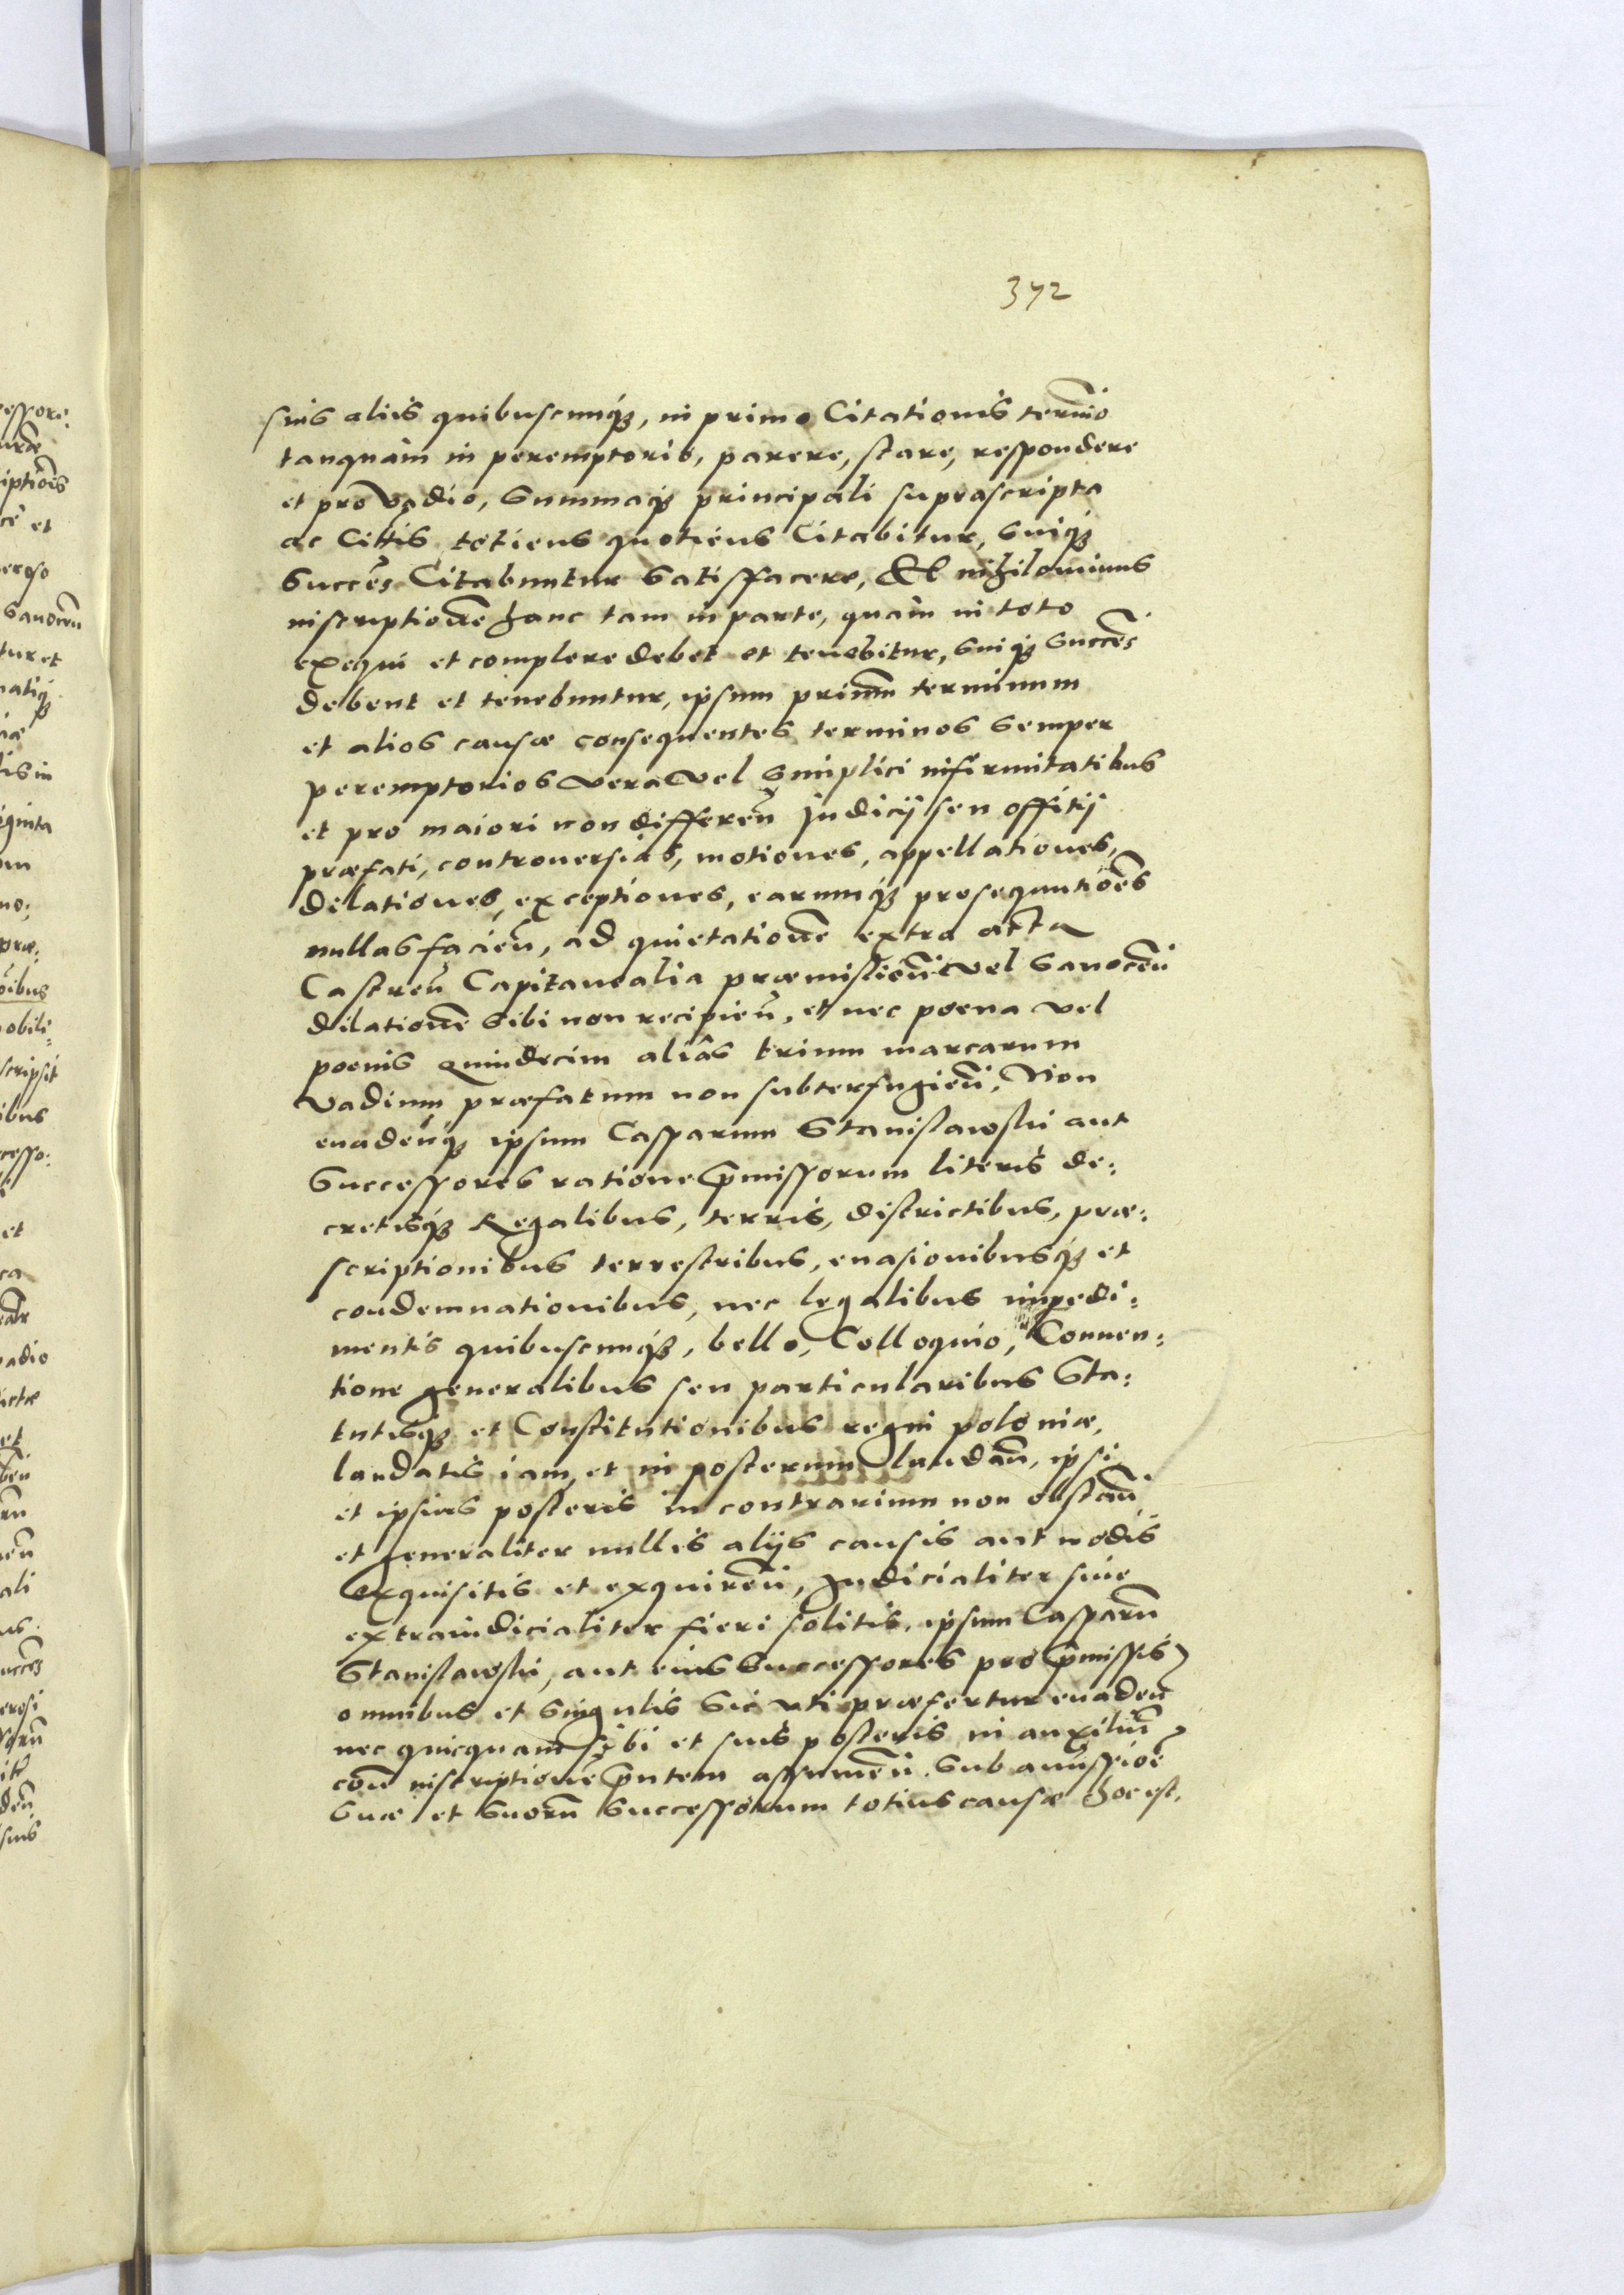 372
suis aliis quibuscunq3, in primo Citationis termīo
tanquam in peremptorio, parere, stare, respondere
et pro vadio, Summaq3 principali suprascripta
ac Cittis totiens quotiens Citabitur, Suiq3
Succēs Citabuntur Satisfacere, Et nihilominus
inscriptionē hanc tam in parte, quam in toto
exequi et complere debet et tenebitur, Suiq3 Succēs
debent et tenebuntur, ipsum primū terminum
et alios causæ consequentes terminos Semper
peremptorios vera vel Simplici infirmitatibus
et pro maiori non differeñ Judicij seu offitij
præfati, controuersias, motiones, appellationes,
delationes, exceptiones, earumq3 prosequutiões
nullas facieñ, ad quietationē extra acta
Castreñ Capitanealia præmislieñ vel Sanoceñ
dilationē Sibi non recipieñ, et nec poena vel
poenis Quindecim aliâs trium marcarum
Vadium præfatum non subterfugieñ, Non
euadeñq3 ipsum Casparum Stanislawski aut
Successores ratione p̄missorum literis de:
cretisq3 Regalibus, terris, districtibus, præ:
scriptionibus terrestribus, euasionibusq3 et
condemnationibus, nec legalibus impedi:
mentis quibuscunq3, bello, Colloquio, Conuen:
tione generalibus seu particularibus Sta:
tutisq3 et Constitutionibus regni poloniæ,
laudatis iam, et in posterum laudañ, ipsi
et ipsius posteris in contrarium non obstañ
et generaliter nullis alijs causis aut modis
exquisitis et exquireñ, Judicialiter siue
extraiudicialiter fieri solitis, ipsum Casparū
Stanislawski, aut eius Successores pro p̄missis
omnibus et Singulis Sic uti præfertur euadeñ
nec quicquam sibi et suis posteris in auxiliū
coñ inscriptionē p̄ntem assumeñ. Sub amissioē
Suæ et Suorū Successorum totius causæ hoc est,